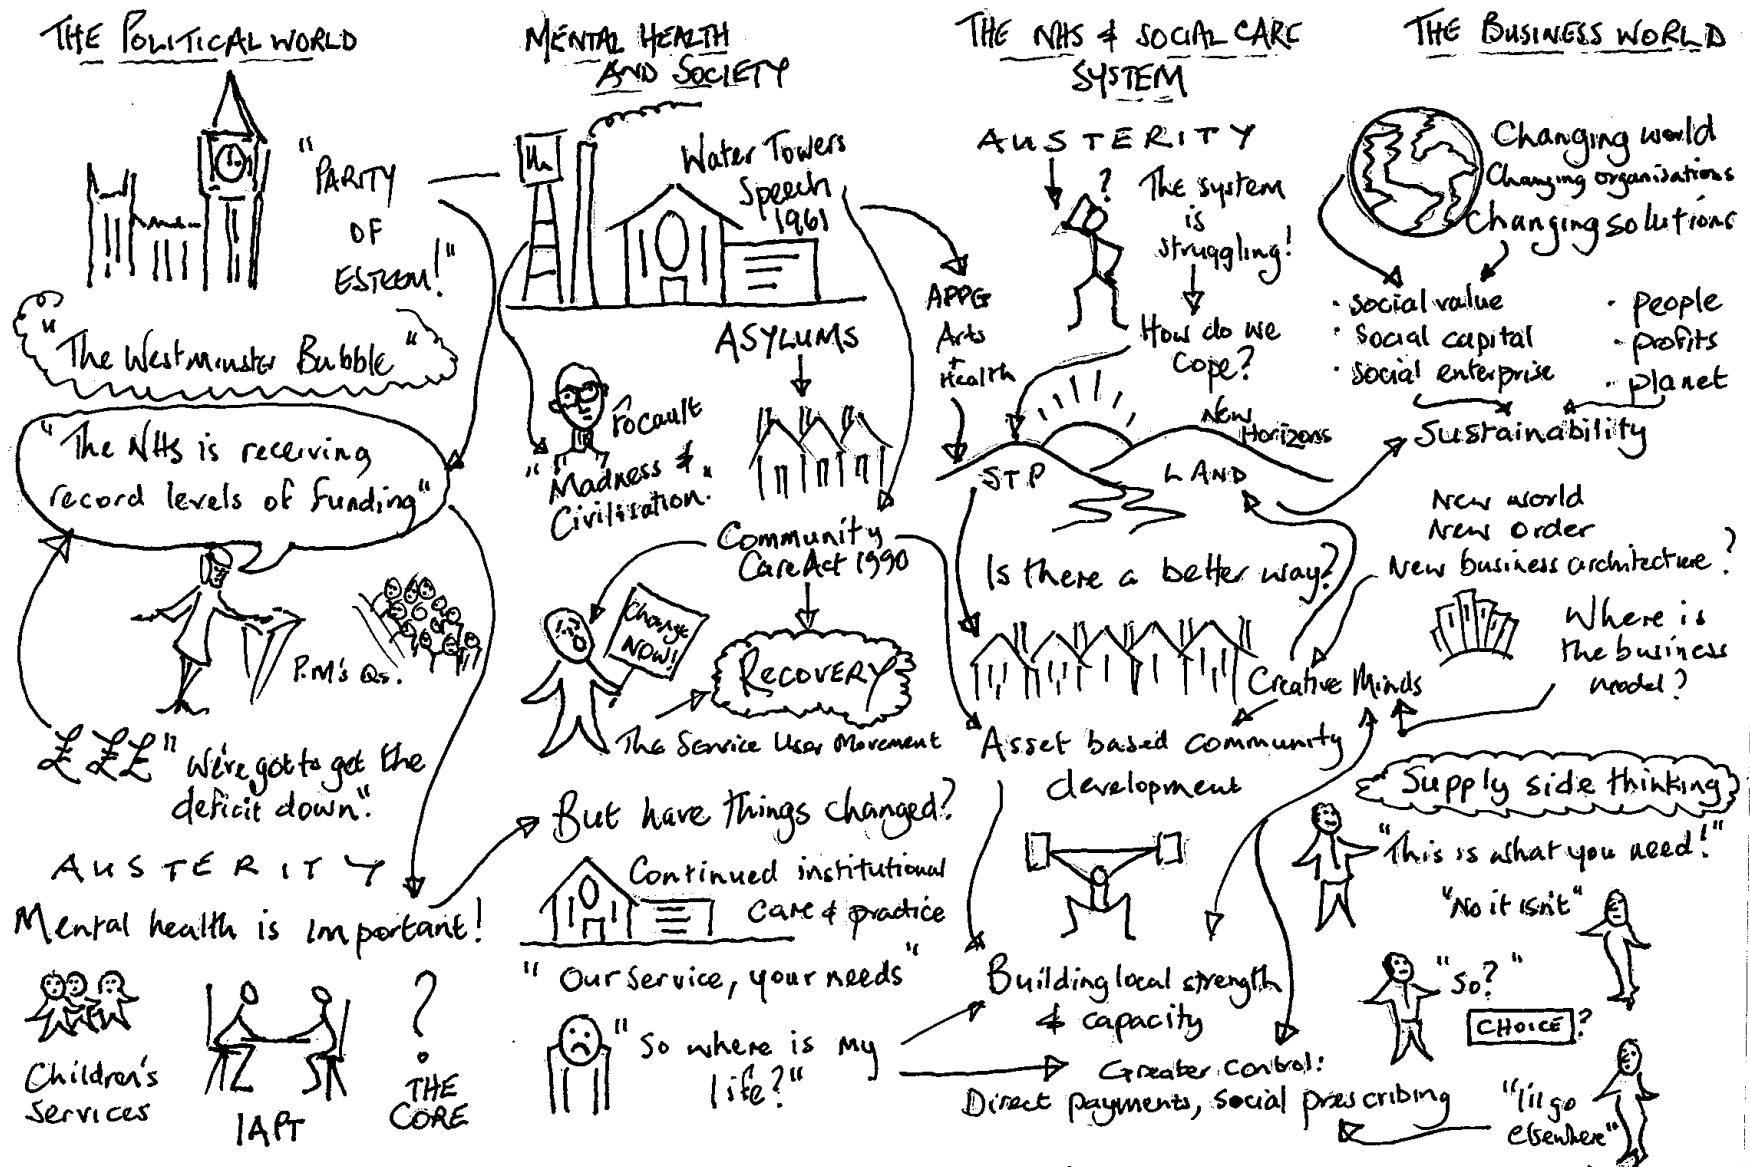 THE POLITICAL WORLD
"PARITY
OF
ESTEEM!"
"The Westminster Bubble"
"The NHS is receiving
record levels of funding"
P.M's Qs.
£££ "We're got to get the
deficit down".
AUSTERITY
Mental health is important!
Children's
Services
IAPT
?
THE
CORE
MENTAL HEALTH
AND SOCIETY
Water Towers
Speech
1961
ASYLUMS
Focault
"Madness &
Civilisation."
Community
Care Act 1990
Change
NOW!
RECOVERY
The Service User Movement
But have things changed?
Continued institutional
care & practice
"Our service, your needs"
"So where is my
life?"
THE NHS & SOCIAL CARE
SYSTEM
AUSTERITY
?
The system
is
struggling!
How do we
cope?
APPG
Arts
+
Health
New
Horizons
STP LAND
Is there a better way?
Creative Minds
Asset based community
development
Building local strength
& capacity
Greater control:
Direct payments, social prescribing
THE BUSINESS WORLD
Changing world
Changing organisations
Changing solutions
· social value
· social capital
· social enterprise
· people
· profits
· planet
Sustainability
New world
New order
New business architecture?
Where is
the business
model?
Supply side thinking
"This is what you need!"
"No it isn't"
"So?"
CHOICE?
"I'll go
elsewhere"